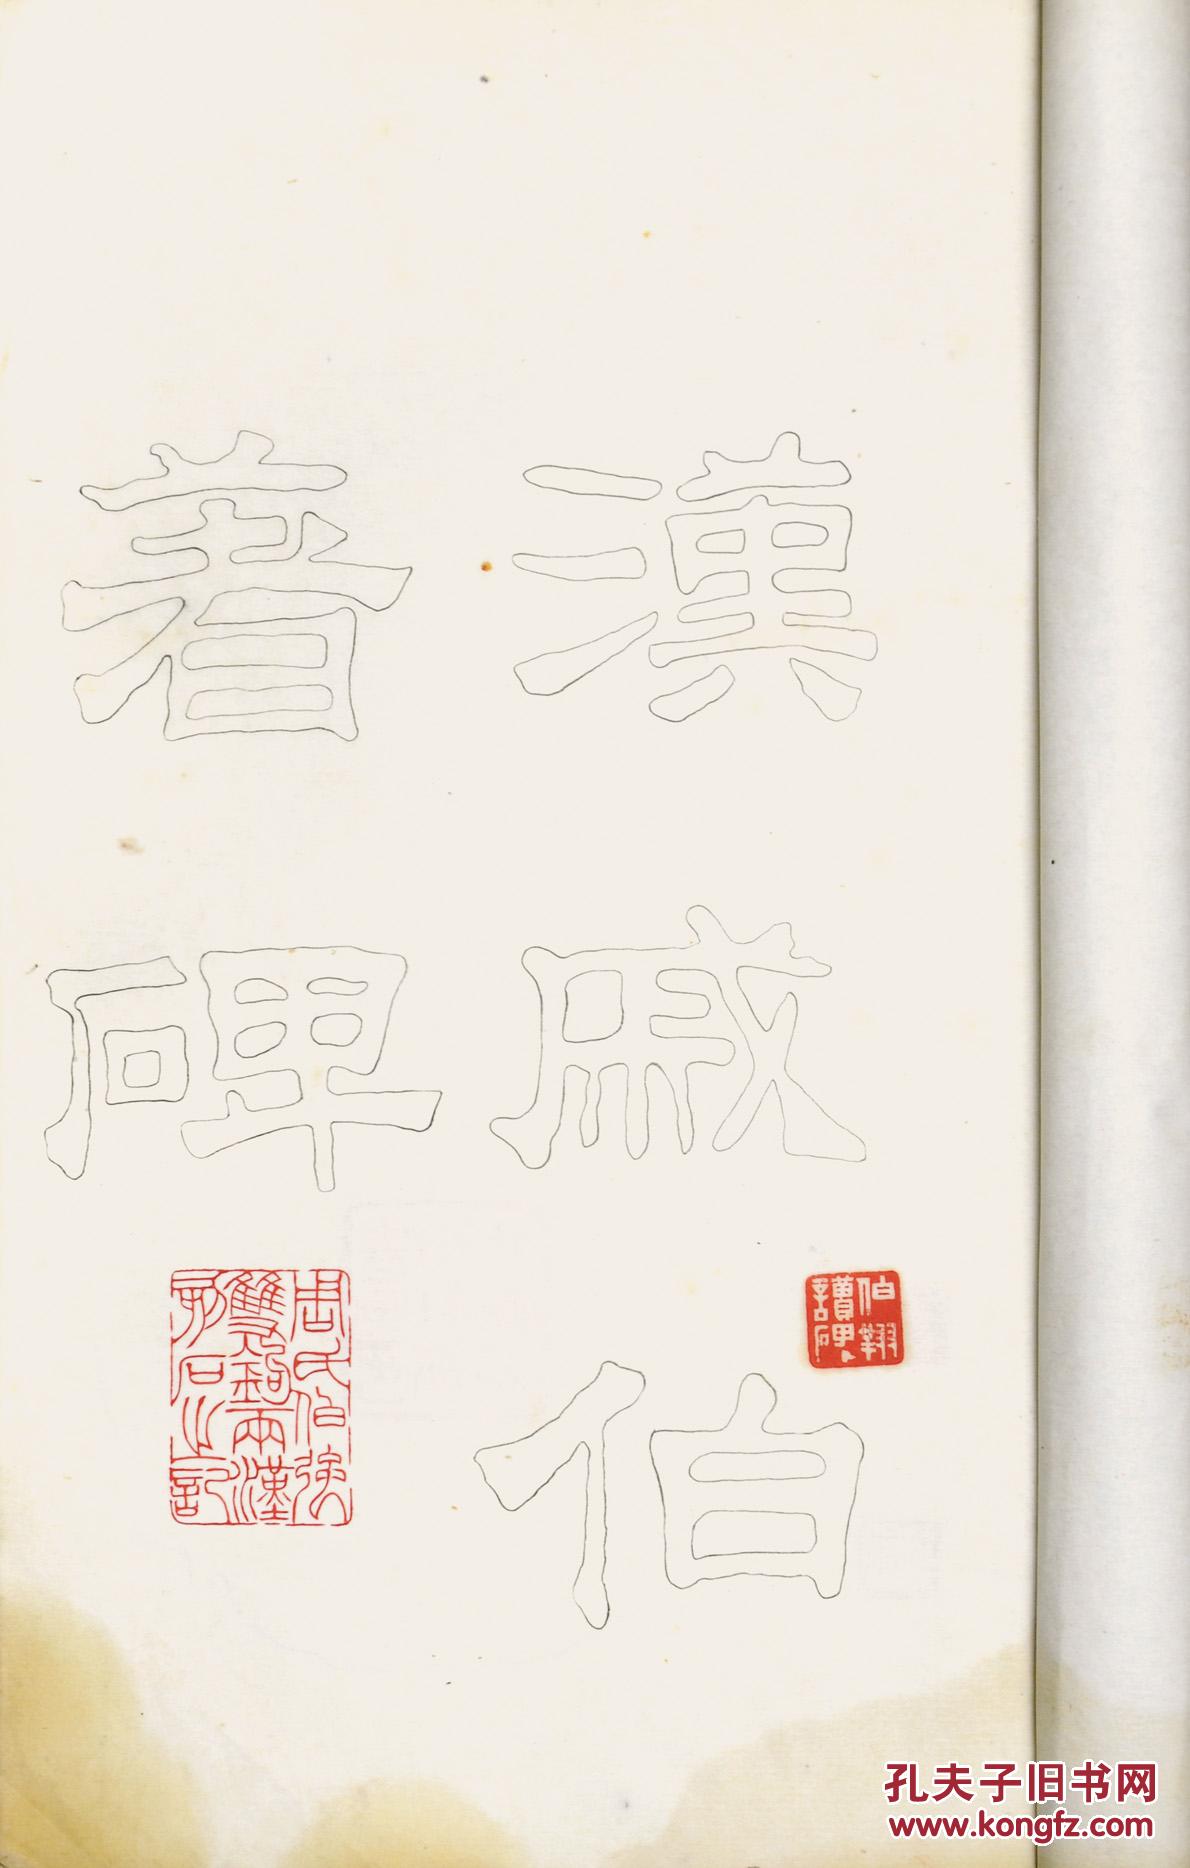 漢戚伯
著碑
伯翔
讀碑
周氏伯
雙鉤兩漢
石之記
孔夫子旧书网
www.kongfz.com